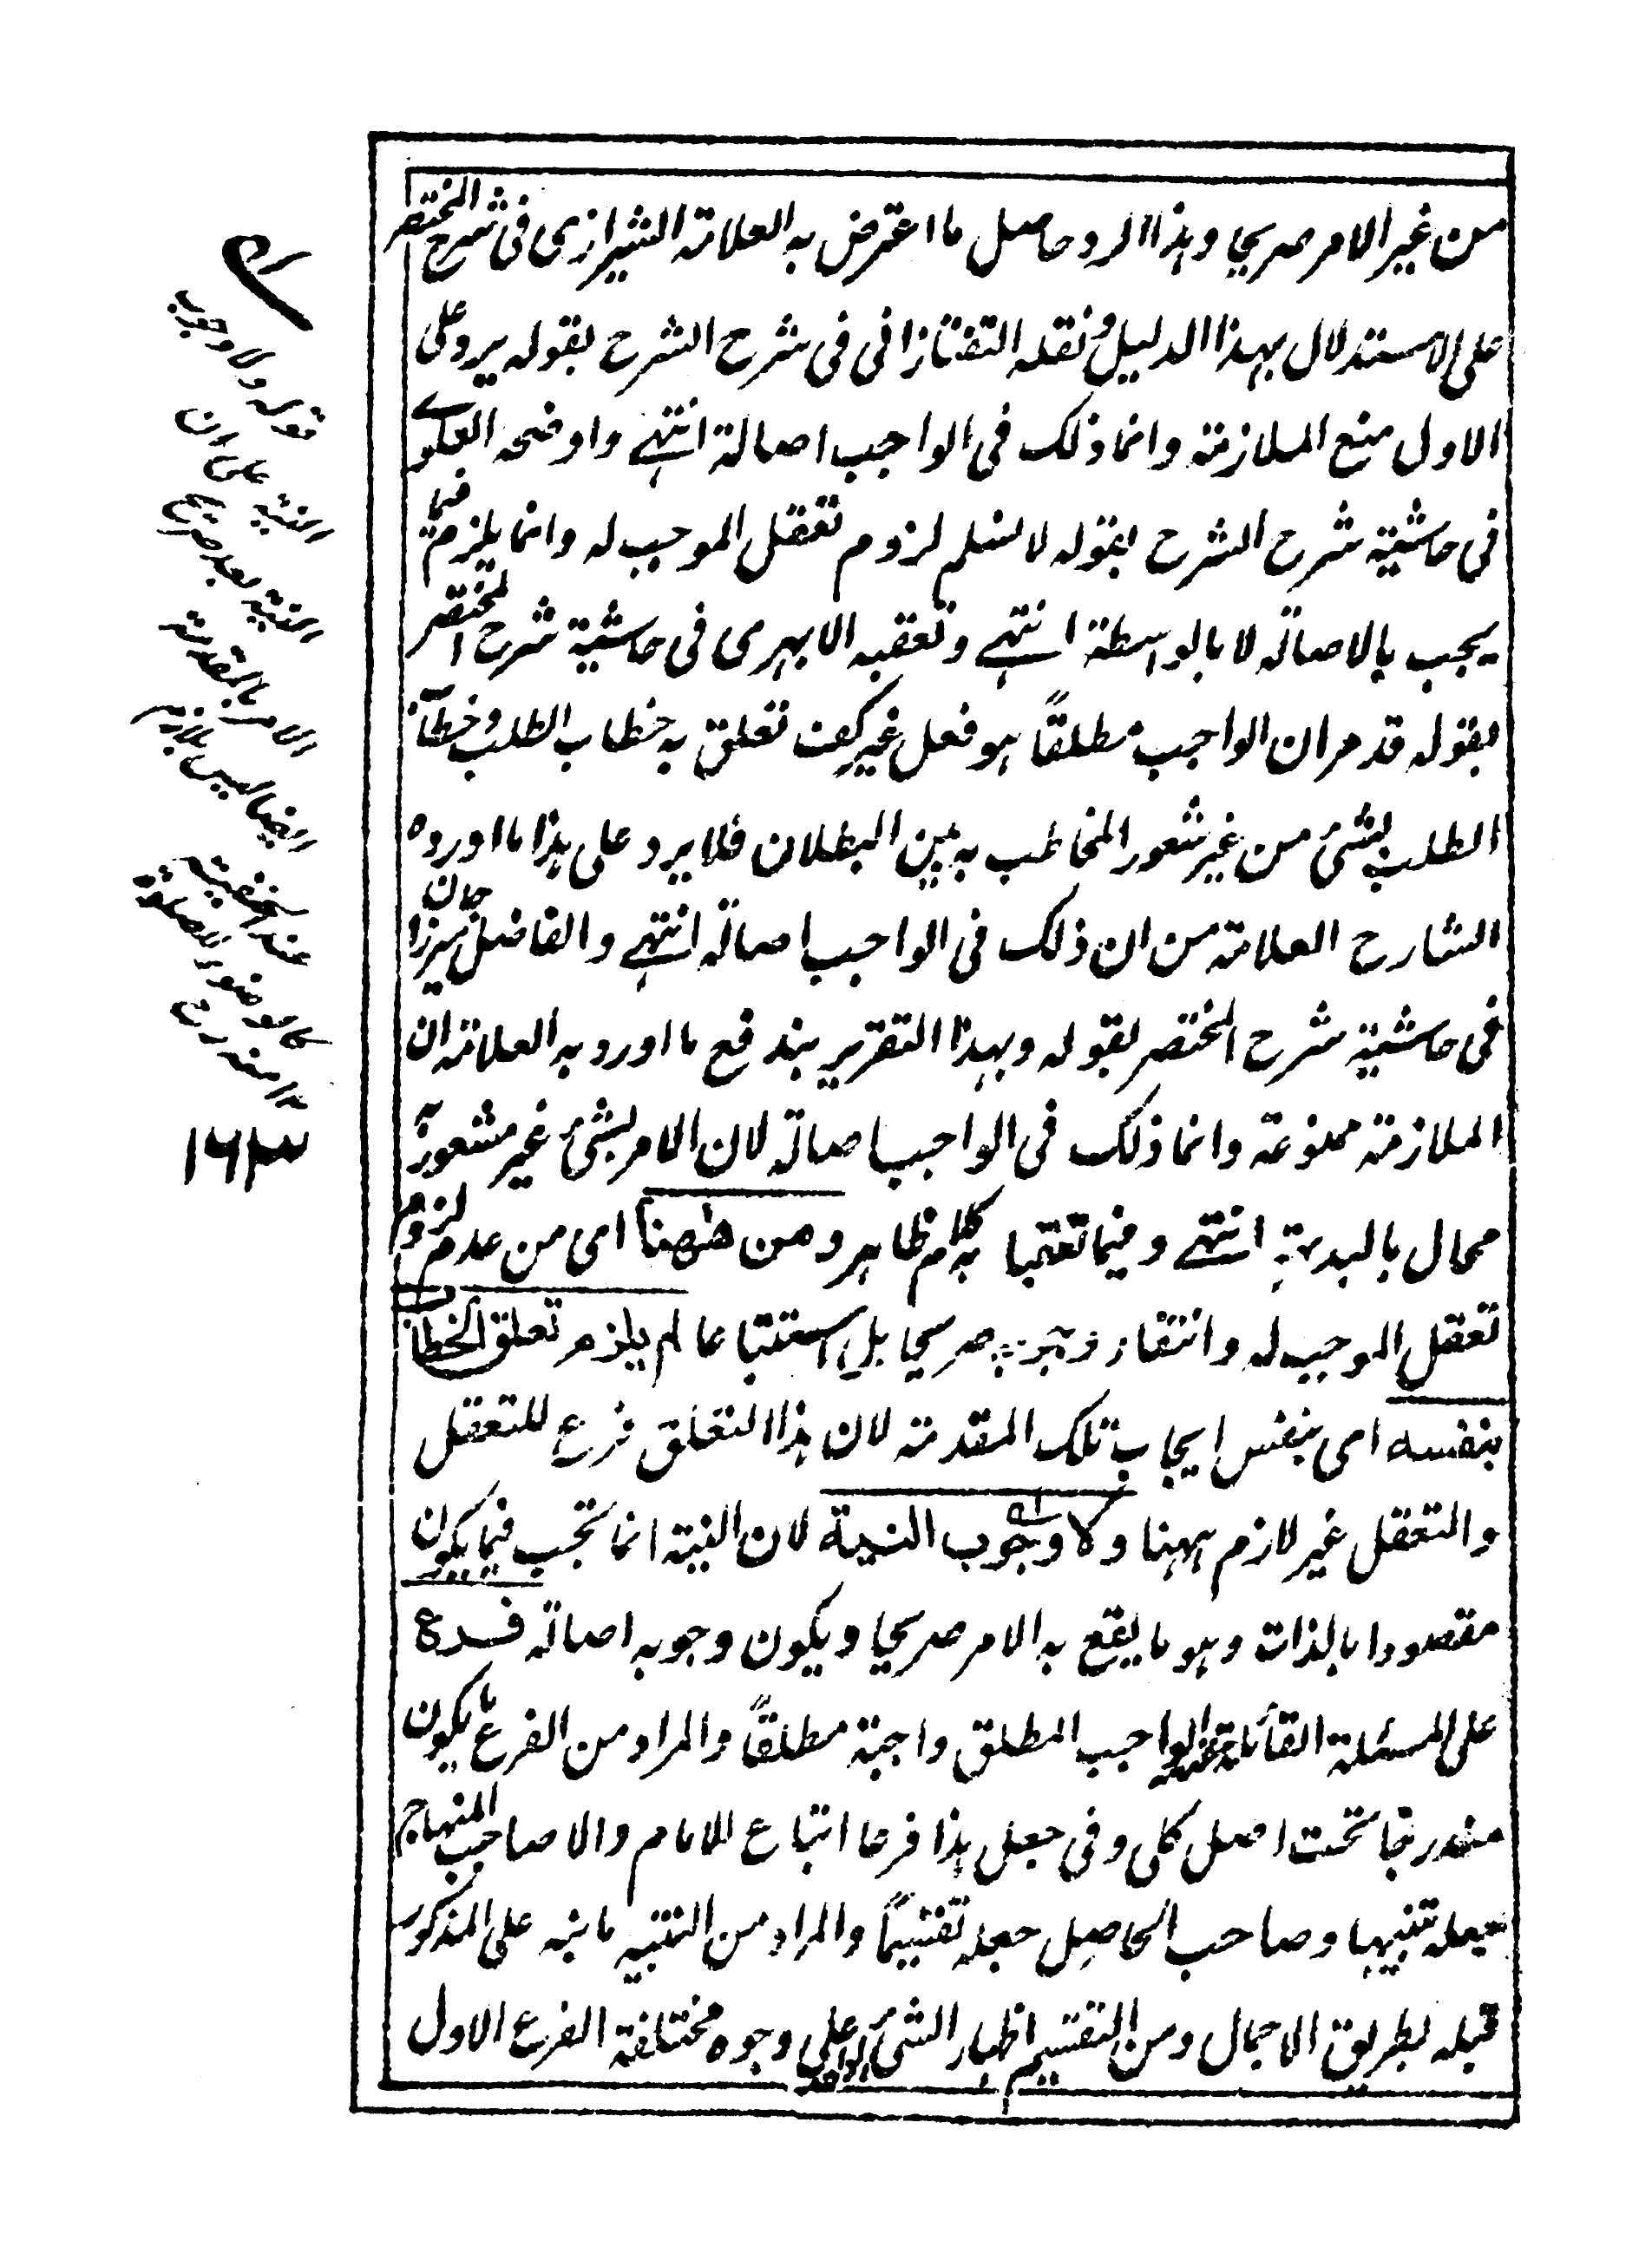 من غير الامر صريحا وهذا الرد حاصل ما اعترض به العلامة الشيرازى فى شرح المختصر
على الاستدلال بهذا الدليل ونقله التفتازانى فى شرح الشرح بقوله يرد على
الاول منع الملازمة وانما ذلك فى الواجب اصالة انتهى واوضحه العلوى
فى حاشية شرح الشرح بقوله لا نسلم لزوم تعقل الموجب له وانما يلزم فيما
يجب بالاصالة لا بالواسطة انتهى وتعقبه الابهرى فى حاشية شرح المختصر
بقوله قد مر ان الواجب مطلقاً هو فعل غير كف تعلق به خطاب الطلب وخطاب
الطلب بشئ من غير شعور المخاطب به بين البطلان فلا يرد على هذا ما اورده
الشارح العلامة من ان ذلك فى الواجب اصالة انتهى والفاضل ميرزا جان
فى حاشية شرح المختصر بقوله وبهذا التقرير يندفع ما اورد به العلامة ان
الملازمة ممنوعة وانما ذلك فى الواجب اصالة لان الامر بشئ غير مشعور به
محال بالبديهة انتهى وفيما تعقبا به كلام ظاهر ومن ههنا اى من عدم لزوم
تعقل الموجب له وانتفاء صريحا بل استتباعا لم يلزم تعلق الخطاب
بنفسه اى بنفس ايجاب تلك المقدمة لان هذا التعلق فرع للتعقل
والتعقل غير لازم ههنا ولا وجوب النية لان النية انما تجب فيما يكون
مقصودا بالذات وهو ما يقع به الامر صريحا ويكون وجوبه اصالة فرع
على المسئلة القائلة مقدمة الواجب المطلق واجبة مطلقاً والمراد من الفرع ما يكون
مندرجا تحت اصل كلى وفى جعل هذا فرعا اتباع للامام والا صاحب المنهاج
جعله تنبيها وصاحب الحاصل جعله تقسيماً والمراد من التنبيه ما نبه على المذكور
قبله بطريق الاجمال ومن التقسيم اظهار الشئ الواحد على وجوه مختلفة الفرع الاول
قوله ولا وجوب
النية
الامر بالمقدمة
ايضا ليس
عند الحنفية
كالوضوء للصلوة
١٢ منه